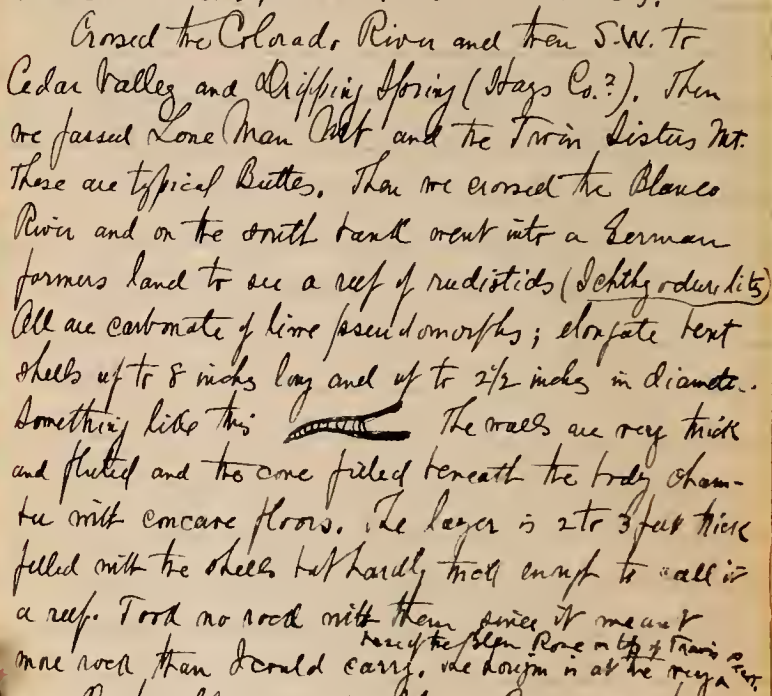 Crossed the Colorado River and then S.W. to
Cedar Valley and Dripping Spring (Hays Co.?). Then
we passed Lone Man Mt and the Twin Sisters Mt.
These are typical Buttes. Then we crossed the Blanco
River and on the south bank went into a German
farmers land to see a reef of rudistids (Ichthyodurilits)
All are carbonate of lime pseudomorphs; elongate bent
shells up to 8 inches long and up to 2 1/2 inches in diameter.
Something like this The walls are very thick
and fluted and the cone filled beneath the body cham-
ber with concave floors. The layer is 2 to 3 feet thick
filled with the shells but hardly thick enough to call it
a reef. Took no rock with them since it meant
more rock than I could carry. The horizon is at the very
base of the Glen Rose on top of Travis